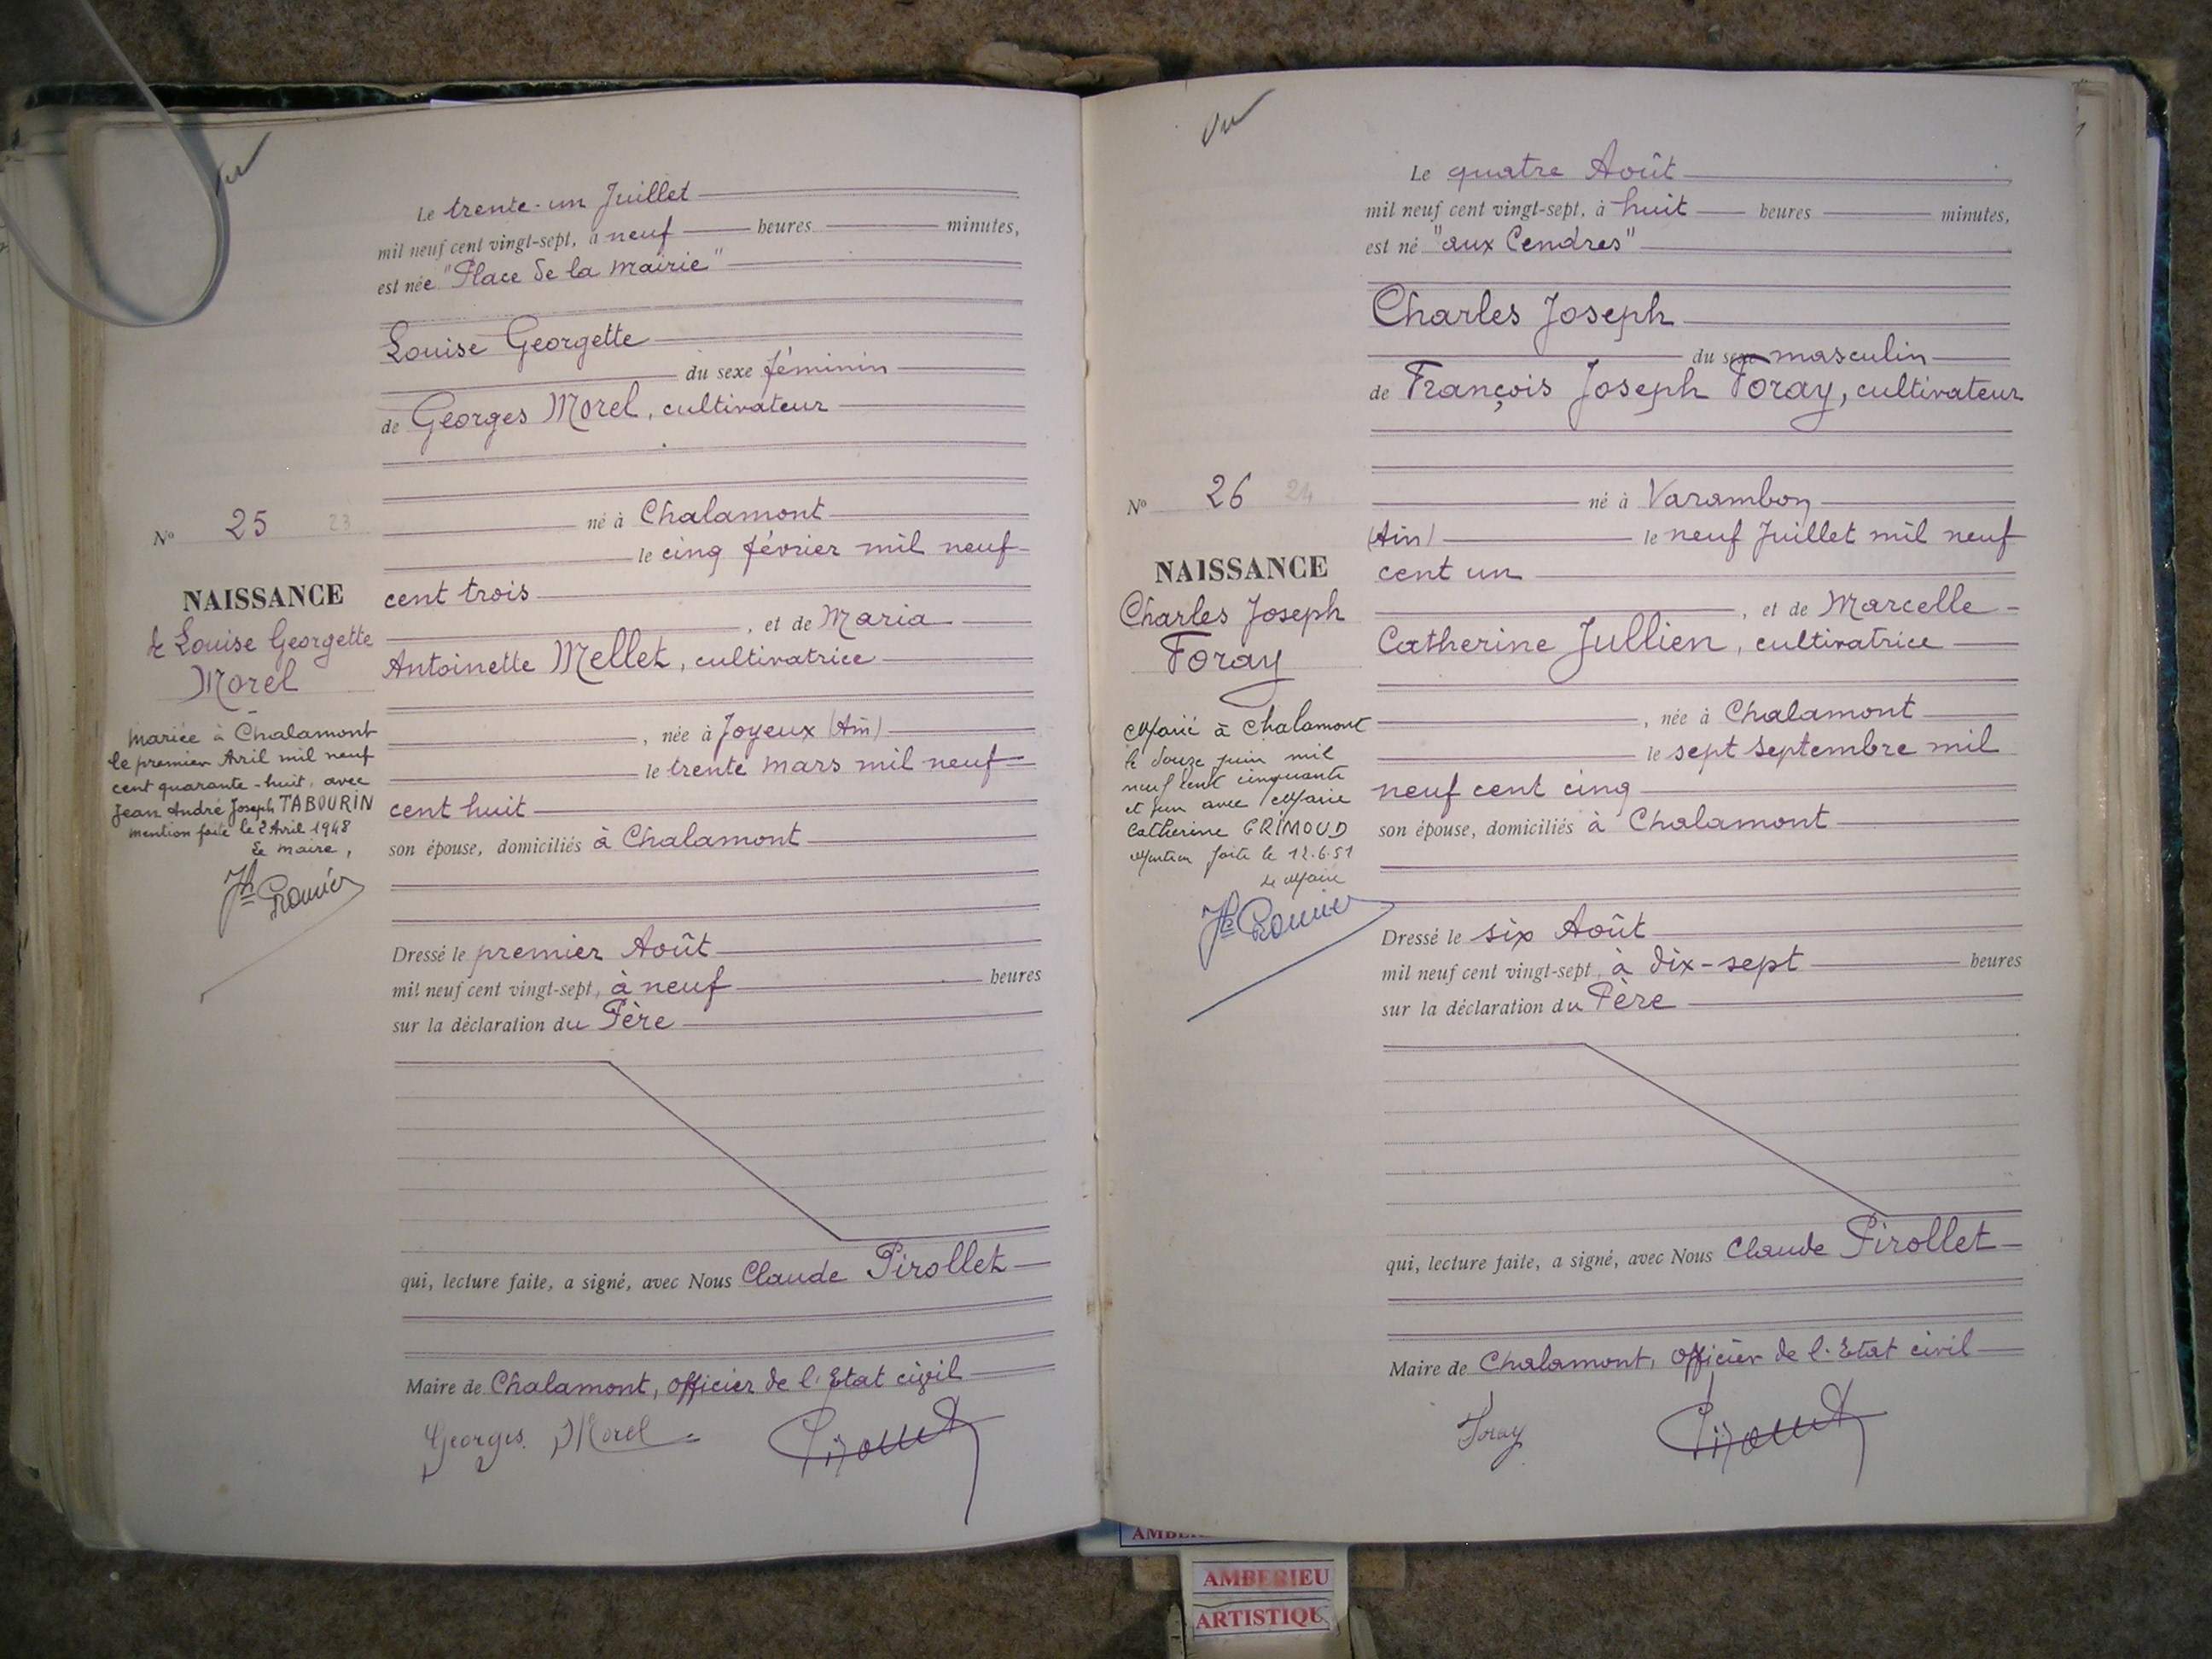 Vu
Le trente-un Juillet
mil neuf cent vingt-sept, à neuf heures minutes,
est née "Place de la Mairie"
Louise Georgette
du sexe féminin
de Georges Morel, cultivateur
né à Chalamont
le cinq février mil neuf
cent trois
, et de Maria
Antoinette Mellet, cultivatrice
, née à Joyeux (Ain)
le trente Mars mil neuf
cent huit
son épouse, domiciliés à Chalamont
Dressé le premier Août
mil neuf cent vingt-sept, à neuf heures
sur la déclaration du Père
qui, lecture faite, a signé, avec Nous Claude Pirollet
Maire de Chalamont, Officier de l'Etat civil
Georges Morel
Nº 25 23
NAISSANCE
de Louise Georgette
Morel
Mariée à Chalamont
le premier Avril mil neuf
cent quarante-huit, avec
Jean André Joseph TABOURIN
mention faite le 2 Avril 1948
Le Maire,
Vu
Le quatre Août
mil neuf cent vingt-sept, à huit heures minutes,
est né "aux Cendres"
Charles Joseph
du sexe masculin
de François Joseph Foray, cultivateur
né à Varambon
(Ain) le neuf Juillet mil neuf
cent un
, et de Marcelle
Catherine Jullien, cultivatrice
, née à Chalamont
le sept Septembre mil
neuf cent cinq
son épouse, domiciliés à Chalamont
Dressé le six Août
mil neuf cent vingt-sept, à dix-sept heures
sur la déclaration du Père
qui, lecture faite, a signé, avec Nous Claude Pirollet
Maire de Chalamont, Officier de l'Etat civil
Foray
Nº 26 24
NAISSANCE
Charles Joseph
Foray
Marié à Chalamont
le douze juin mil
neuf cent cinquante
et un avec Marie
Catherine GRIMOUD
Mention faite le 12.6.51
Le Maire
AMBERIEU
ARTISTIQU